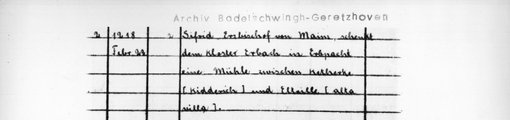 Archiv Bodelschwingh-Geretzhoven
2 1218 2 Sifrid Erzbischof von Mainz, schenkt
Febr. 22 dem Kloster Erbach in Erbpacht
eine Mühle zwischen Ketherke
[Kidderich] und Eltville [alta
villa].